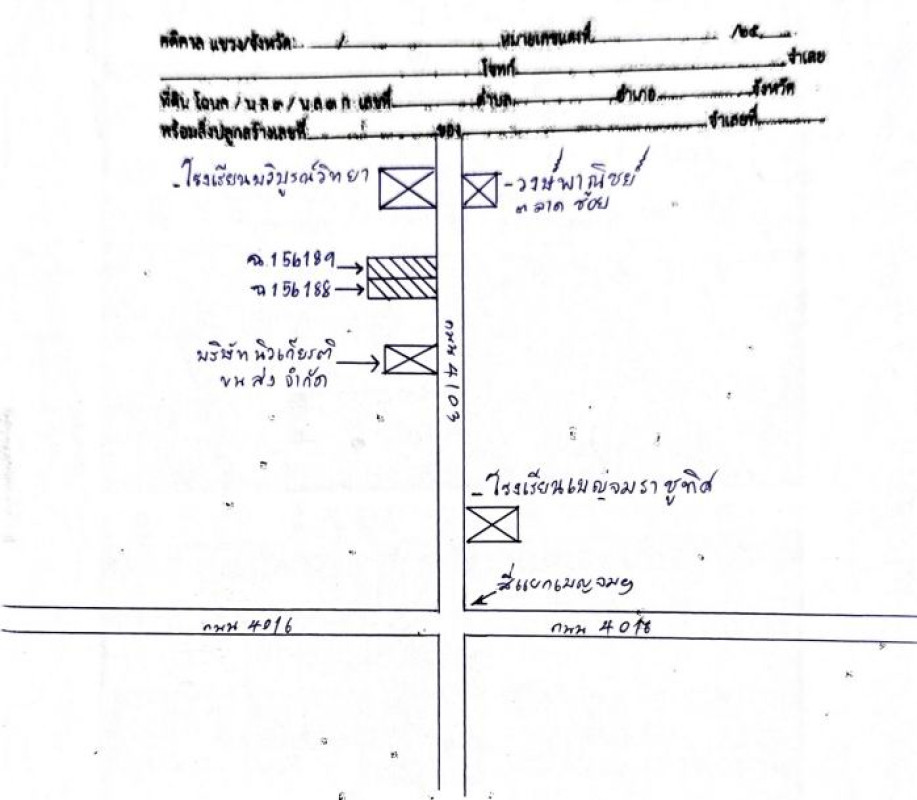 คดีศาล แขวง/จังหวัด / หมายเลขแดงที่ /๒๕
โจทก์ จำเลย
ที่ดิน โฉนด / น.ส.๓ / น.ส.๓ ก เลขที่ ตำบล อำเภอ จังหวัด
พร้อมสิ่งปลูกสร้างเลขที่ ของ จำเลยที่
- โรงเรียนบริบูรณ์วิทยา
- วงษ์พาณิชย์
ตลาด ซอย
ฉ.156189
ฉ 156188
บริษัท นิวเกียรติ
ขนส่ง จำกัด
ถนน 4103
- โรงเรียนเบญจมราชูทิศ
สี่แยกเบญจมฯ
ถนน 4016
ถนน 4016